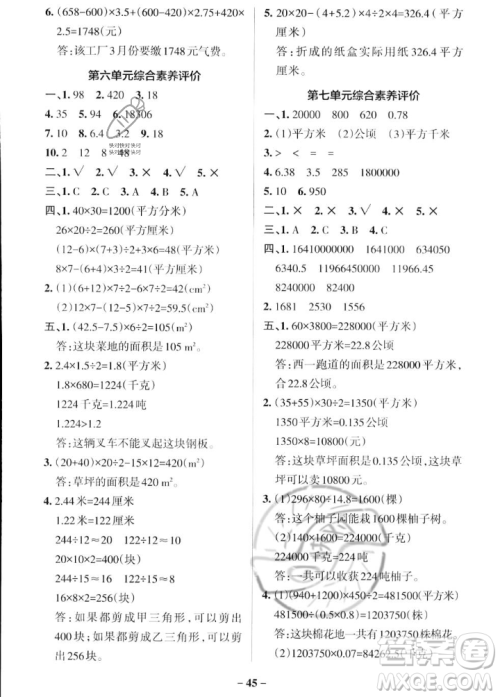 6. (658-600)×3.5+(650-420)×2.75+420×
2.5=1748(元)
答:该工厂3月份要缴1748元气费。
第六单元综合素养评价
一、1. 18 2. 420 3. 18
4. 35 5. 94 6. 18306
7. 10 8. 6.4 9. 3.2 10. 18
10. 2 12 8 48
二、1. √ 2. √ 3. × 4. × 5. √
三、1. C 2. B 3. C 4. B 5. C
四、1. 40×30=1200(平方分米)
26×20÷2=260(平方米)
(12-6)×(12-4)+3×6=48(平方厘米)
8×7-(6+4)×3÷2=41(平方分米)
2. (1)(6+12)×7÷2=63(平方米)
(2)(6+12)×6÷2=54(平方厘米)
五、1. (42.5-7.5)×3=105(m²)
答:这块菜地的面积是 105 m²。
2. 2.4×1.5÷2=1.8(平方米)
1.8×680=1224(千克)
1224 千克=1.224 吨
1.224>1.2
答:这辆叉车不能叉起这块钢板。
3. (20+40)×(20÷2-15÷2)=420(m²)
答:草坪的面积是 420 m²。
4. 2.44 米=244 厘米
1.22 米=122 厘米
244÷12≈20 122÷12≈10
20×10×2=400(块)
244÷15≈16 122÷15≈8
16×8×2=256(块)
答:如果都剪成甲三角形,可以剪
出400块;如果都剪成乙三角形,可以剪
出256块。
5. 20×20-(4+5.2)×4÷2×4=326.4(平方厘
米)
答:折成的纸盒实际用纸326.4平方厘
米。
第七单元综合素养评价
一、1. 20000 2. 800 620 0.78
2. (1)平方米 (2)公顷 (3)平方千米
3. > < = =
4. 6.38 7.28 0.315 1800000
5. 10 6. 950
二、1. √ 2. × 3. × 4. √ 5. ×
三、1. B 2. C 3. C 4. A 5. C
四、1. 16410000000 1641000 6340500000
6340.5 11966450000 11966.45
8240000 824
2. 1681 2530 1353
五、1. 60×3800=228000(平方米)
228000平方米=22.8公顷
答:西一跑道的面积是 228000平方米,
合 22.8公顷。
2. (35+55)×30÷2=1350(平方米)
1350平方米=0.135公顷
1350×8=10800(元)
答:这块草坪面积是0.135公顷,这块草坪
可以卖 10800元。
3. (1)296×80÷14.8=1600(棵)
答:这个柚子园能栽1600棵柚子树。
(2)140×1600=224000(千克)
224000千克=224吨
答:一共可以收获224吨柚子。
4. (1)(940+1200)×450÷2=481500(平方米)
481500÷(0.5×0.8)=1203750(株)
答:这块棉花地一共有1203750株棉花。
- 45 -